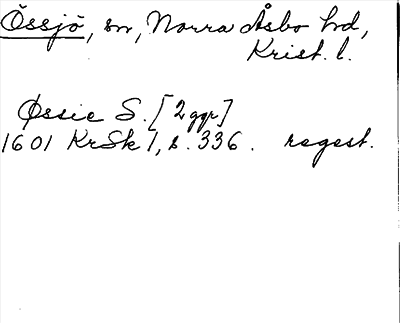 Össjö, sn, Norra Åsbo hd,
Krist. l.
Øssie S. [2 ggr]
1601 KrSk 1, s. 336. regest.